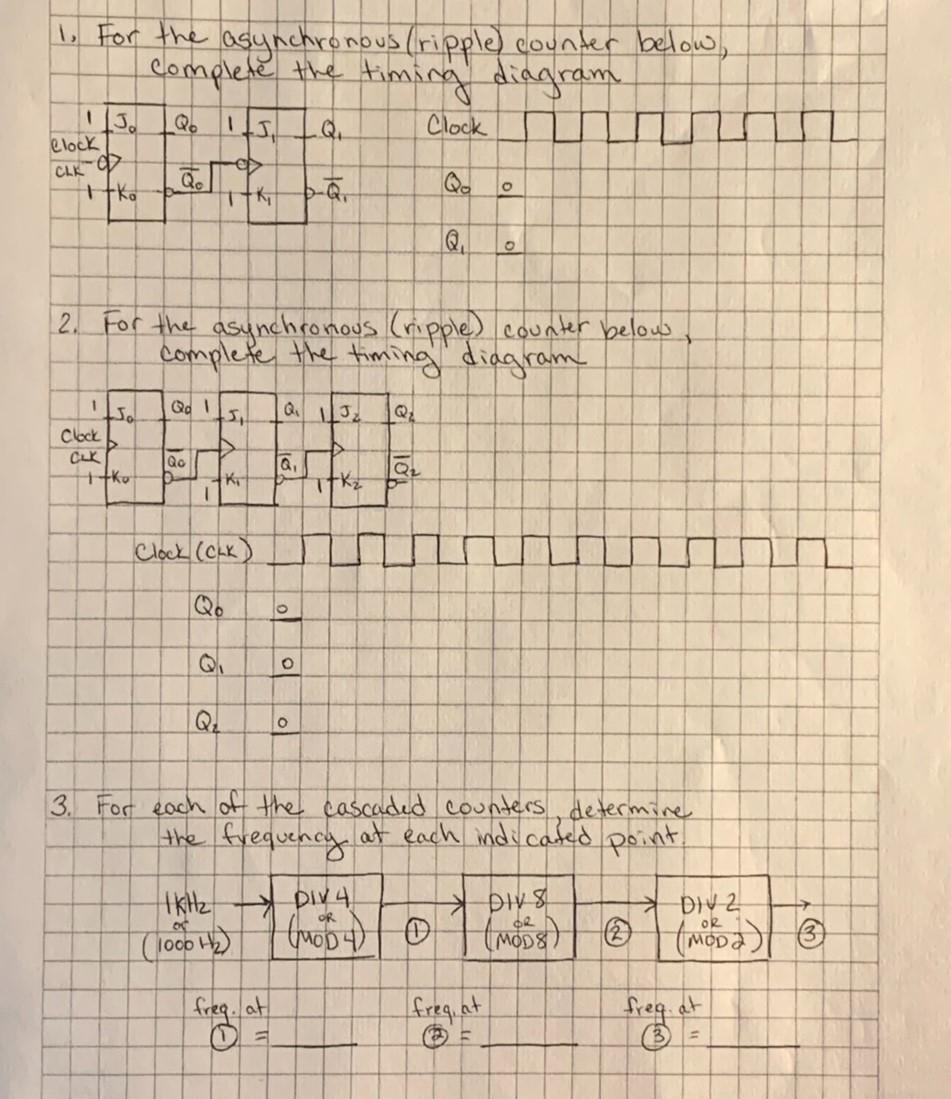 1. For the asynchronous (ripple) counter below,
complete the timing diagram
1 J₀ Q₀ 1 J₁ Q₁ Clock
Clock
CLK
Q̅₀ Q₀ 0
1 K₀ 1 K₁ Q̅₁
Q₁ 0
2. For the asynchronous (ripple) counter below,
complete the timing diagram
1 J₀ Q₀ 1 J₁ Q₁ 1 J₂ Q₂
Clock
CLK Q̅₀ Q̅₁ Q̅₂
1 K₀ 1 K₁ 1 K₂
Clock (CLK)
Q₀ 0
Q₁ 0
Q₂ 0
3. For each of the cascaded counters, determine
the frequency at each indicated point.
1KHz DIV 4 DIV 8 DIV 2
or OR OR OR
(1000 Hz) (MOD4) ① (MOD8) ② (MOD2) ③
freq. at freq. at freq. at
① = ② = ③ =